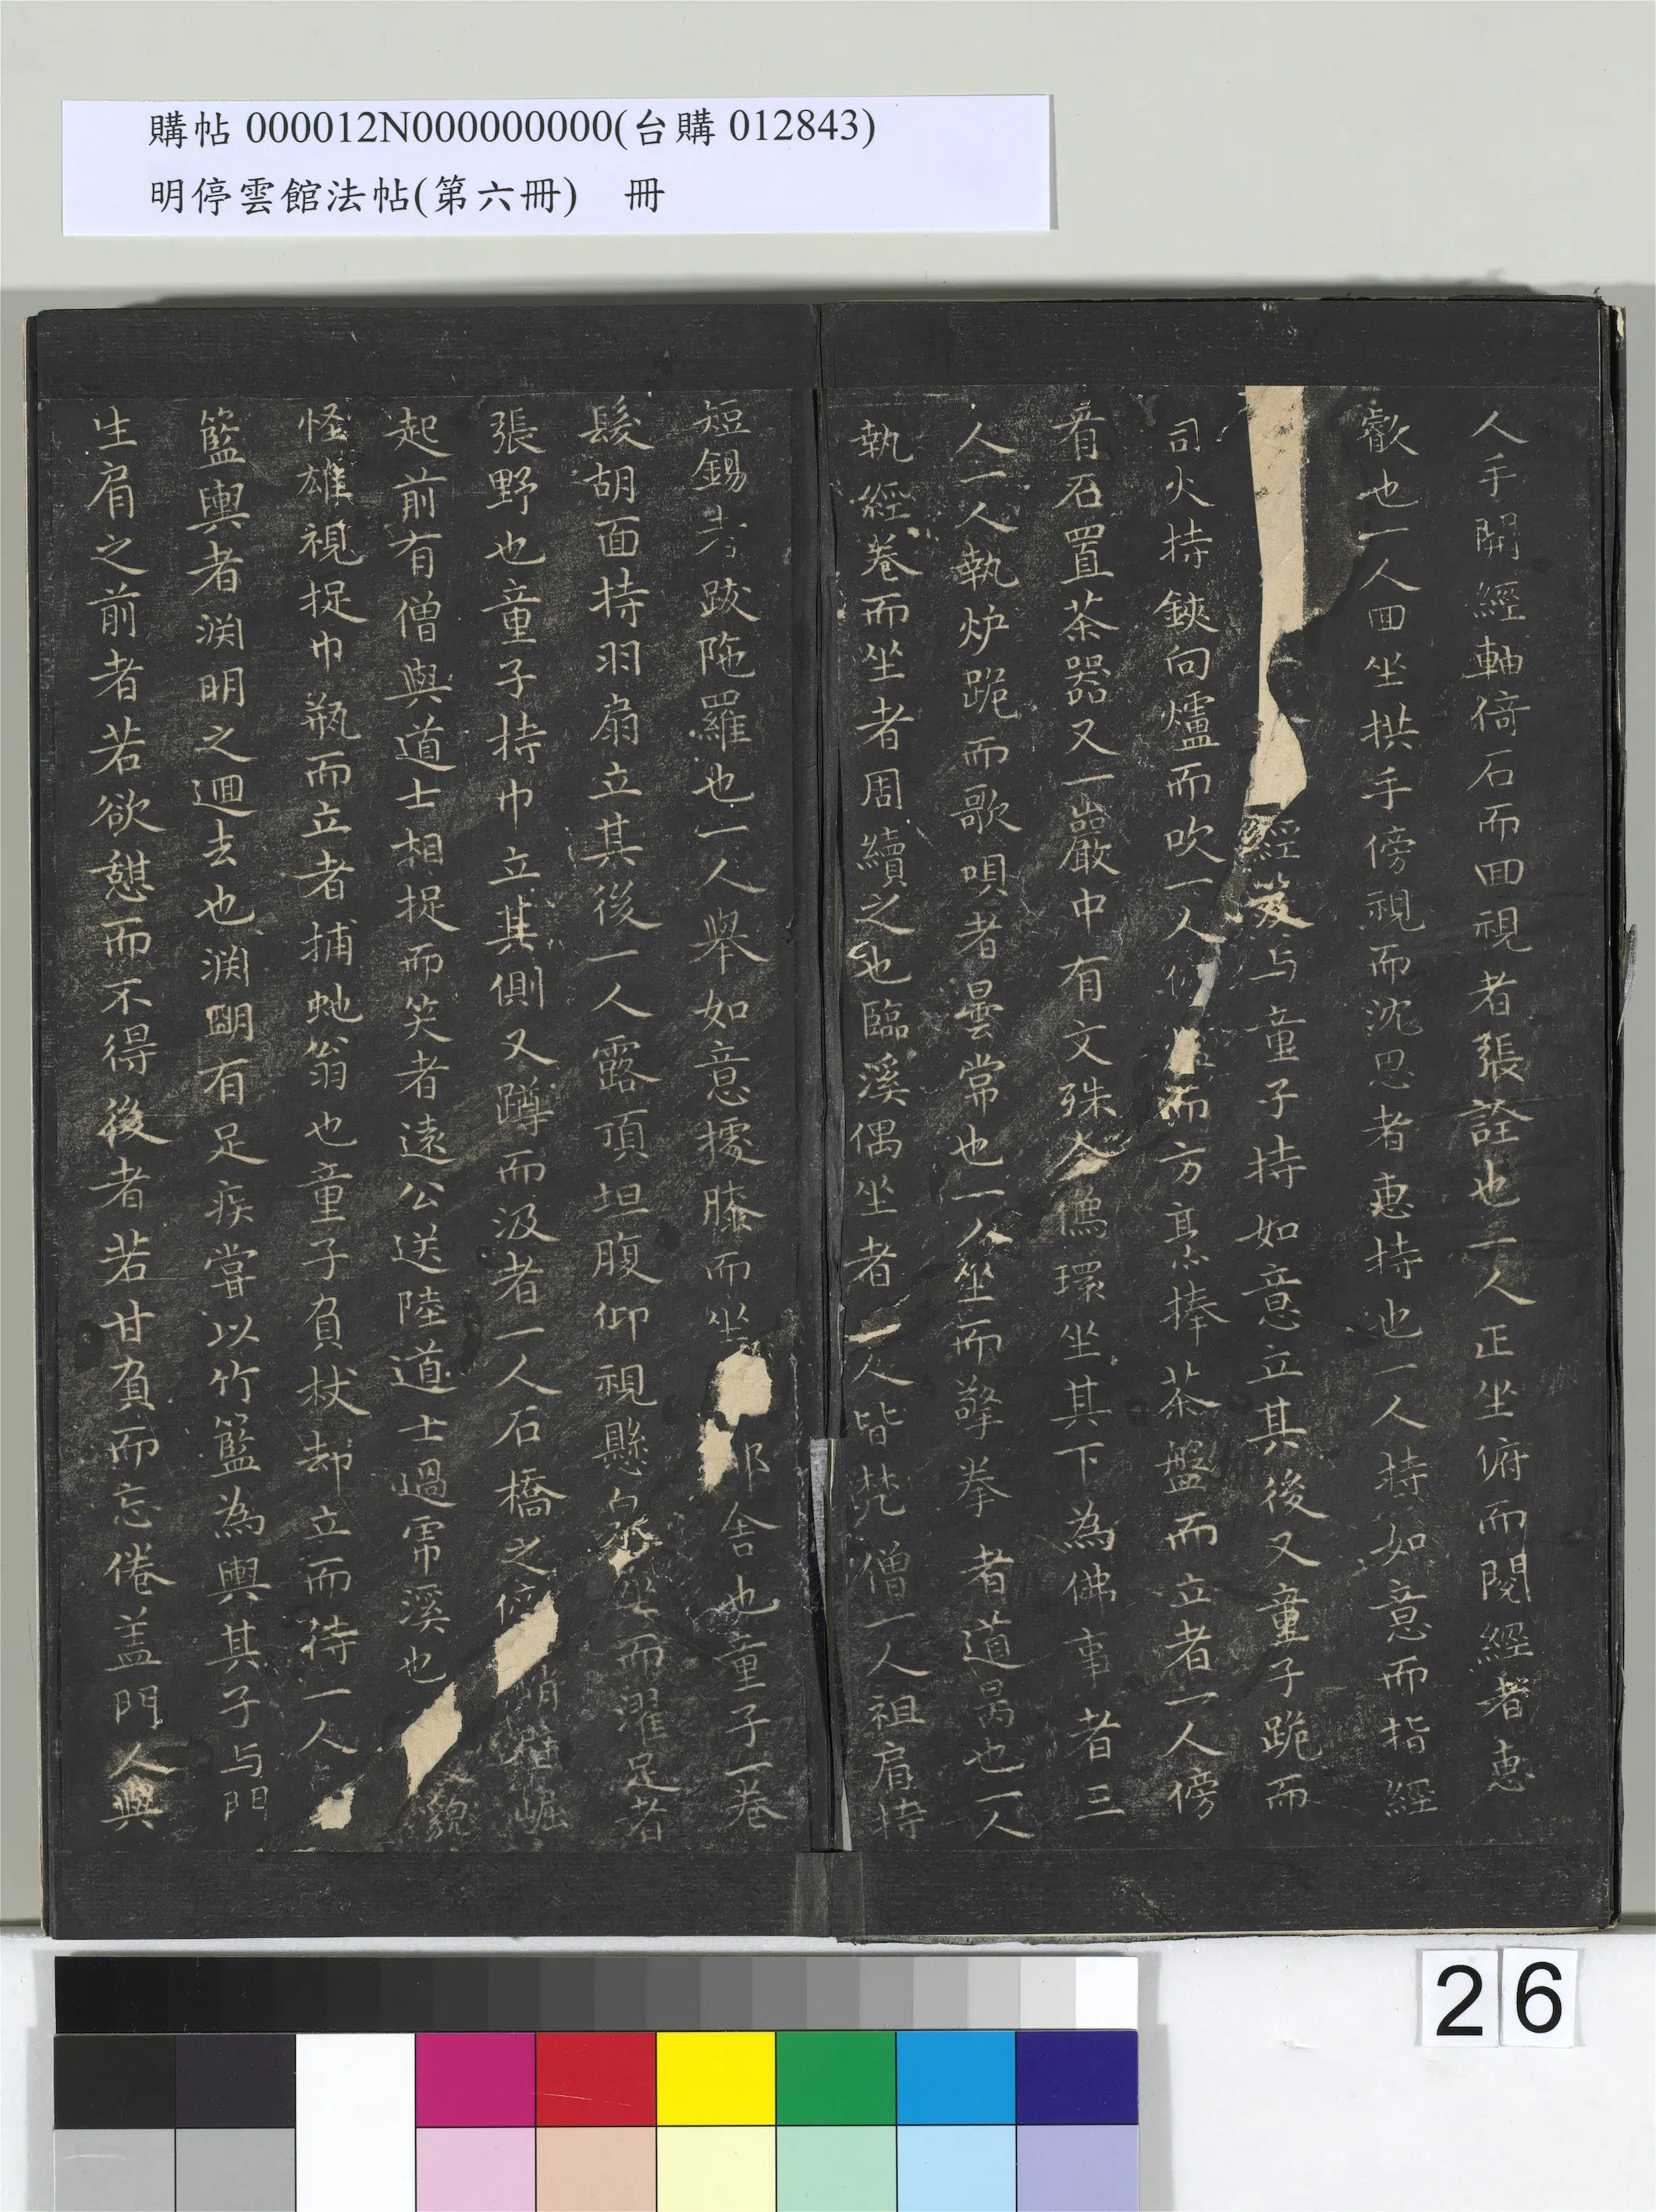 購帖 000012N000000000(台購 012843)
明停雲館法帖(第六冊) 冊
人手開經軸倚石而回視者張詮也一人正坐俯而閱經者惠
叡也一人回坐拱手傍視而沈思者惠持也一人持如意而指經
經笈与童子持如意立其後又童子跪而
司火持鋏向爐而吹一人而方烹捧茶盤而立者一人傍
有石置茶器又一巖中有文殊金像環坐其下為佛事者三
人一人執炉跪而歌唄者曇常也一人坐而擎拳者道昺也一人
執經卷而坐者周續之也臨溪偶坐者二人皆梵僧一人袒肩持
短錫者跋陁羅也一人舉如意據膝而坐耶舍也童子一卷
髮胡面持羽扇立其後一人露頂坦腹仰視懸而濯足者
張野也童子持巾立其側又蹲而汲者一人石橋之峭崛
起前有僧與道士相捉而笑者遠公送陸道士過虎溪也貌
怪雄視捉巾瓶而立者捕虵翁也童子負杖却立而待一人
籃輿者渊明之迴去也渊明有足疾嘗以竹籃為輿其子与門
生肩之前者若欲憇而不得後者若甘負而忘倦盖門人與
26